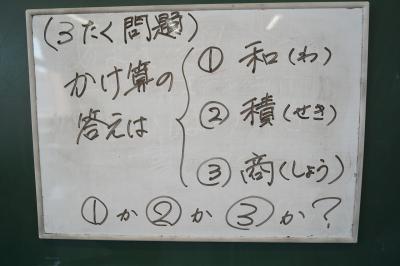 (3たく問題)
かけ算の
答えは
① 和(わ)
② 積(せき)
③ 商(しょう)
①か②か③か?